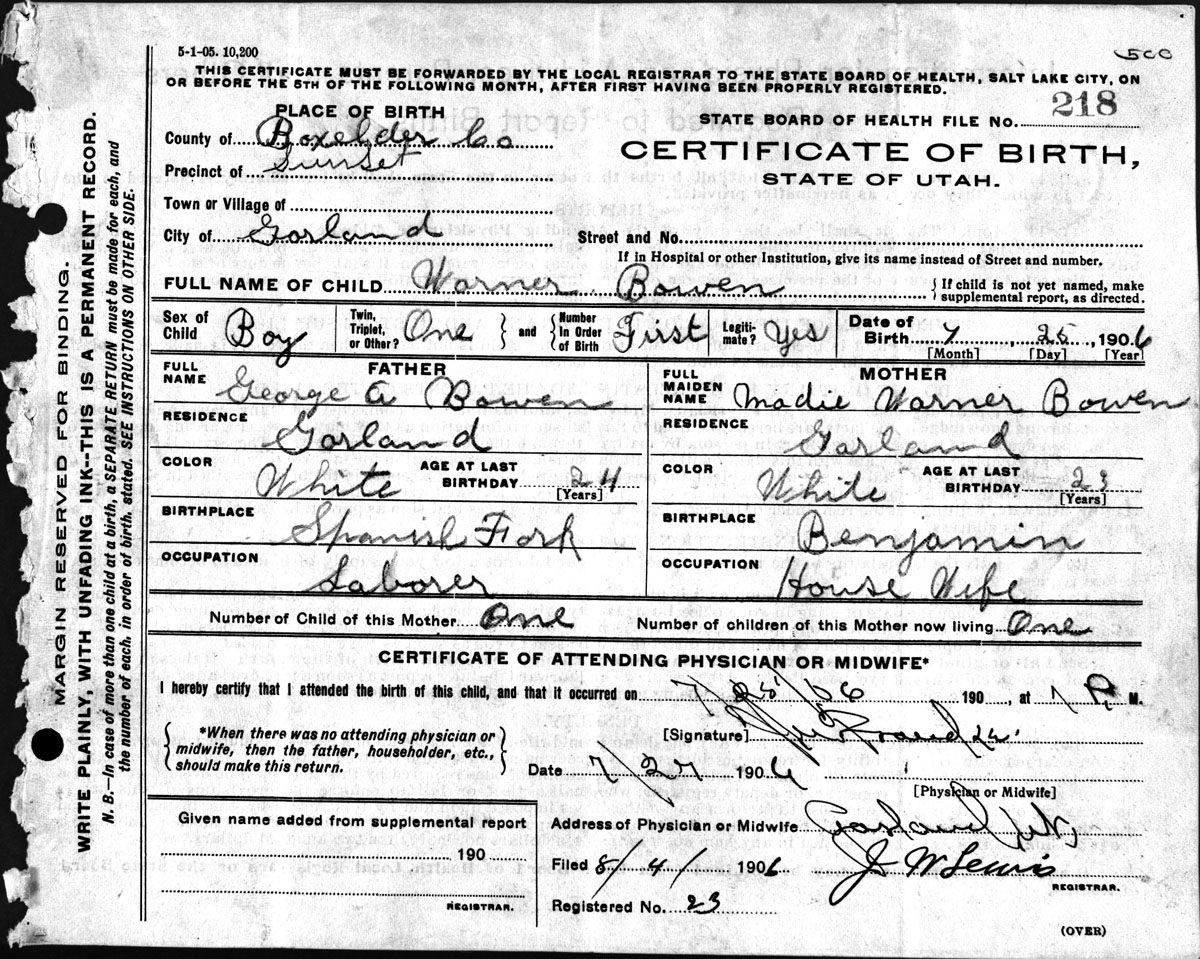 5-1-05. 10,200
500
THIS CERTIFICATE MUST BE FORWARDED BY THE LOCAL REGISTRAR TO THE STATE BOARD OF HEALTH, SALT LAKE CITY, ON
OR BEFORE THE 5TH OF THE FOLLOWING MONTH, AFTER FIRST HAVING BEEN PROPERLY REGISTERED.
PLACE OF BIRTH
STATE BOARD OF HEALTH FILE NO. 218
County of Boxelder Co
CERTIFICATE OF BIRTH,
Precinct of Sunset
STATE OF UTAH.
Town or Village of
City of Garland
Street and No.
If in Hospital or other Institution, give its name instead of Street and number.
FULL NAME OF CHILD Warner Bowen
{ If child is not yet named, make
supplemental report, as directed.
Sex of Child Boy
Twin, Triplet, or Other? One
and
Number In Order of Birth First
Legiti-mate? Yes
Date of Birth 7, 25, 1906
[Month] [Day] [Year]
FATHER
FULL NAME George A Bowen
RESIDENCE
Garland
COLOR White
AGE AT LAST BIRTHDAY 24
[Years]
BIRTHPLACE
Spanish Fork
OCCUPATION
Laborer
MOTHER
FULL MAIDEN NAME Madie Warner Bowen
RESIDENCE
Garland
COLOR White
AGE AT LAST BIRTHDAY 23
[Years]
BIRTHPLACE
Benjamin
OCCUPATION
House Wife
Number of Child of this Mother One
Number of children of this Mother now living One
CERTIFICATE OF ATTENDING PHYSICIAN OR MIDWIFE*
I hereby certify that I attended the birth of this child, and that it occurred on 7/25/06 190, at 7 P. M.
*When there was no attending physician or
midwife, then the father, householder, etc.,
should make this return.
[Signature]
Date 7/27 1906
[Physician or Midwife]
Given name added from supplemental report
190
REGISTRAR.
Address of Physician or Midwife Garland Ut
Filed 8/4/ 1906 J W Lewis
REGISTRAR.
Registered No. 23
(OVER)
MARGIN RESERVED FOR BINDING.
WRITE PLAINLY, WITH UNFADING INK--THIS IS A PERMANENT RECORD.
N. B.—In case of more than one child at a birth, a SEPARATE RETURN must be made for each, and
the number of each, in order of birth, stated. SEE INSTRUCTIONS ON OTHER SIDE.